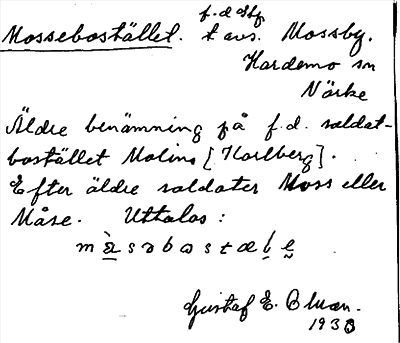 f.d.
Mossebostället. t avs. Mossby.
Hardemo sn
Närke
Äldre benämning på f.d. soldat-
bostället Molins [Karlberg].
Efter äldre soldater Moss eller
Måse. Uttalas:
Gustaf E.